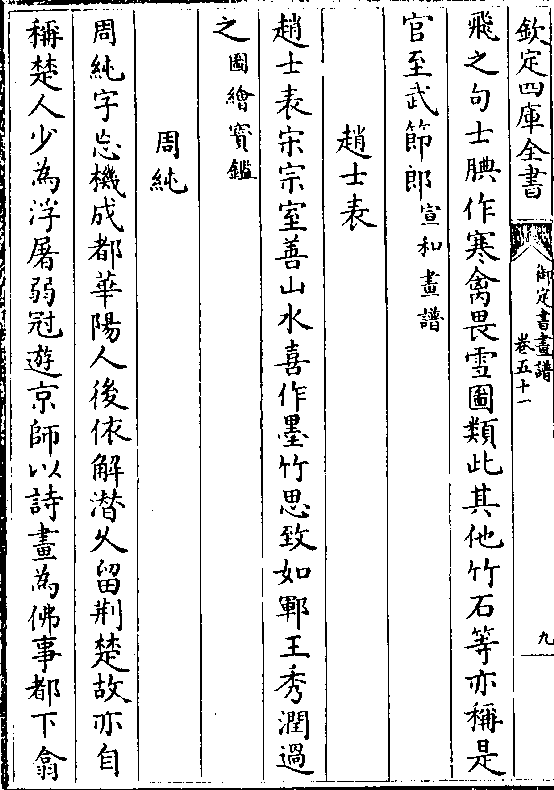 欽定四庫全書
御定書畫譜
卷五十一
九
飛之句士腆作寒禽畏雪圖類此其他竹石等亦稱是
官至武節郎宣和畫譜
趙士表
趙士表宋宗室善山水喜作墨竹思致如鄆王秀潤過
之圖繪寳鑑
周純
周純字忘機成都華陽人後依解潜久留荆楚故亦自
稱楚人少為浮屠弱冠遊京師以詩畫為佛事都下翕